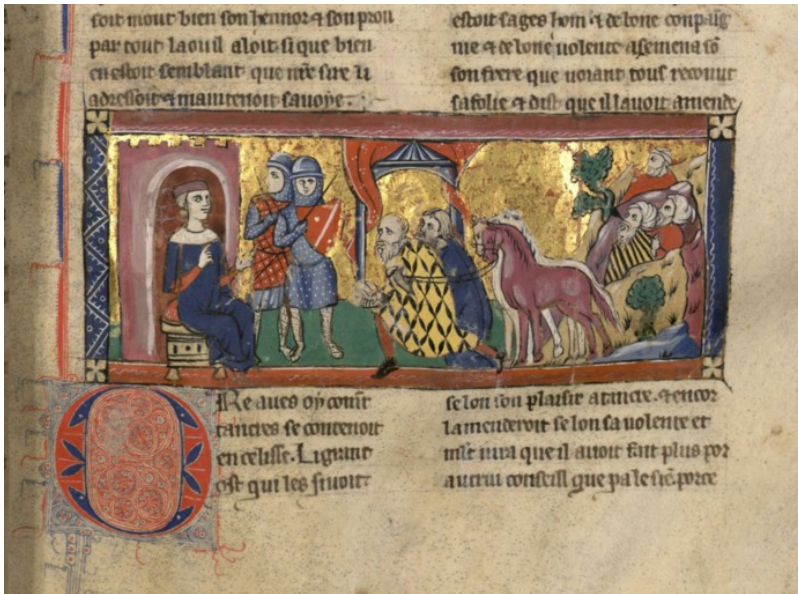 soit mout bien son hennor & son prou
par tout la ou il aloit si que bien
en estoit semblant que nr̃e sire li
adressoit & maintenoit sa uoye.
ORe aues oy comt̃
tancres se contenoit
en celisse. Li grant
ost qui les siuoit
estoit sages hom & de bone conpaig
nie & de bone uolente asemena sõ
son frere que uoiant tous reconut
sa folie & dist que il lauoit amende
selon son plaisir a tancre. & encor
lamenderoit selon sa uolente et
iura que il auoit fait plus por
autrui conseill que pa le siẽ. porce